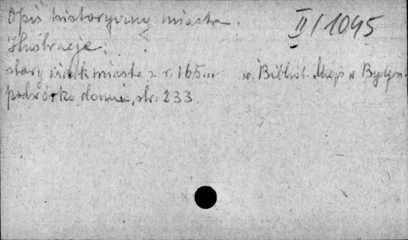 Opis historyczny miasta.
II/1045
ilustracje:
stary widok miasta z r. 165... w Bibliot. Miejs. w Bydgosz
podwórko domu, str. 233.